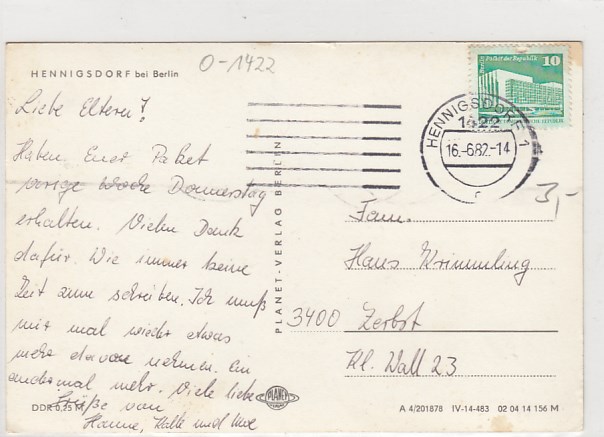 HENNIGSDORF bei Berlin
O-1422
Liebe Eltern!
Haben Euer Paket
vorige Woche Donnerstag
erhalten. Vielen Dank
dafür. Wie immer keine
Zeit zum schreiben. Ich muß
mir mal wieder etwas
mehr davon nehmen. Ein
andermal mehr. Viele liebe
Grüße von
Hanne, Kalle und Uwe
DDR 0,25 M
PLANET-VERLAG BERLIN
PLANET
Palast der Republik
10
HENNIGSDORF 1
1422
16.-6.82.-14
c
3,-
Fam.
Hans Krimmling
3400 Zerbst
Kl. Wall 23
A 4/201878 IV-14-483 02 04 14 156 M